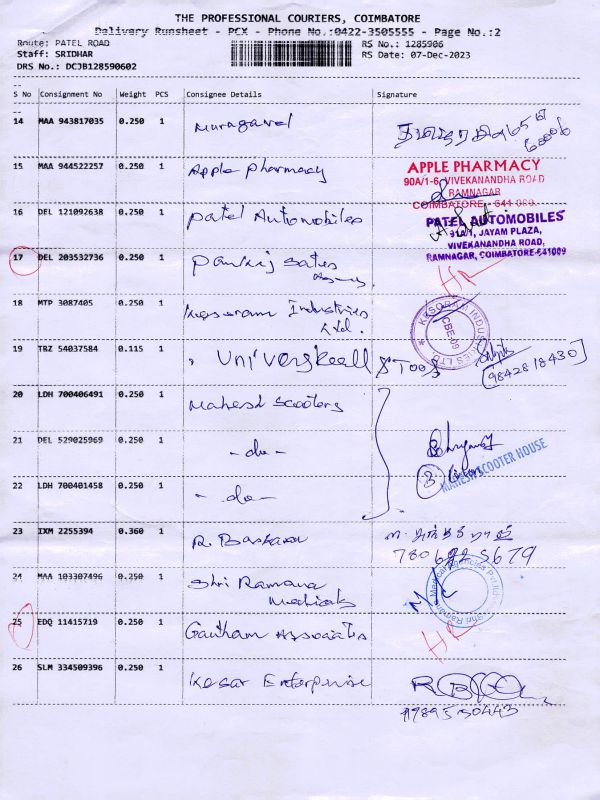 THE PROFESSIONAL COURIERS, COIMBATORE
Delivery Runsheet - PCX - Phone No.:0422-3505555 - Page No.:2
Route: PATEL ROAD RS No.: 1285906
Staff: SRIDHAR RS Date: 07-Dec-2023
DRS No.: DCJB128590602
S No Consignment No Weight PCS Consignee Details Signature
14 MAA 943817035 0.250 1 Murugavel
15 MAA 944522257 0.250 1 Apple Pharmacy
APPLE PHARMACY
90A/1-6, VIVEKANANDHA ROAD
RAMNAGAR
COIMBATORE - 641 009.
16 DEL 121092638 0.250 1 Patel Automobiles
PATEL AUTOMOBILES
91A/1, JAYAM PLAZA,
VIVEKANANDHA ROAD,
RAMNAGAR, COIMBATORE-641009
17 DEL 203532736 0.250 1 Pankaj Sales
18 MTP 3087405 0.250 1 Kesoram Industries
Ltd.
KESORAM INDUSTRIES LTD. CBE-09
19 TRZ 54037584 0.115 1
(98428 18430)
20 LDH 700406491 0.250 1 Mahesh Scooters
21 DEL 529025969 0.250 1 - do -
MAHESH SCOOTER HOUSE
22 LDH 700401458 0.250 1 - do -
23 IXM 2255394 0.360 1 R. Baskaran
24 MAA 103307496 0.250 1 Shri Ramana
Medicals
25 EDQ 11415719 0.250 1 Gautham Associates
26 SLM 334509396 0.250 1 Kesar Enterprise